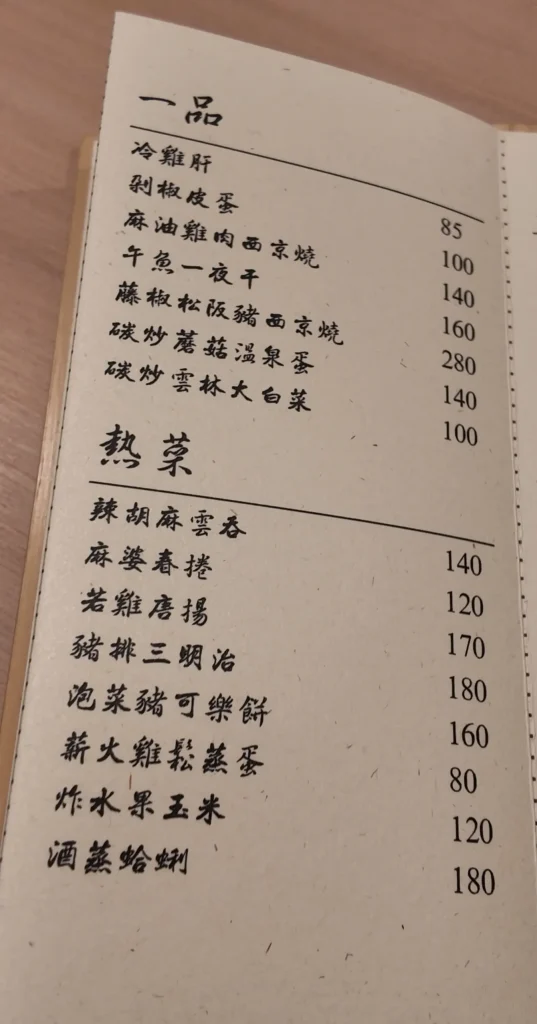 一品
冷雞肝 85
剁椒皮蛋 100
麻油雞肉西京燒 140
午魚一夜干 160
藤椒松阪豬西京燒 280
碳炒蘑菇溫泉蛋 140
碳炒雲林大白菜 100
熱菜
辣胡麻雲吞 140
麻婆春捲 120
若雞唐揚 170
豬排三明治 180
泡菜豬可樂餅 160
薪火雞鬆蒸蛋 80
炸水果玉米 120
酒蒸蛤蜊 180